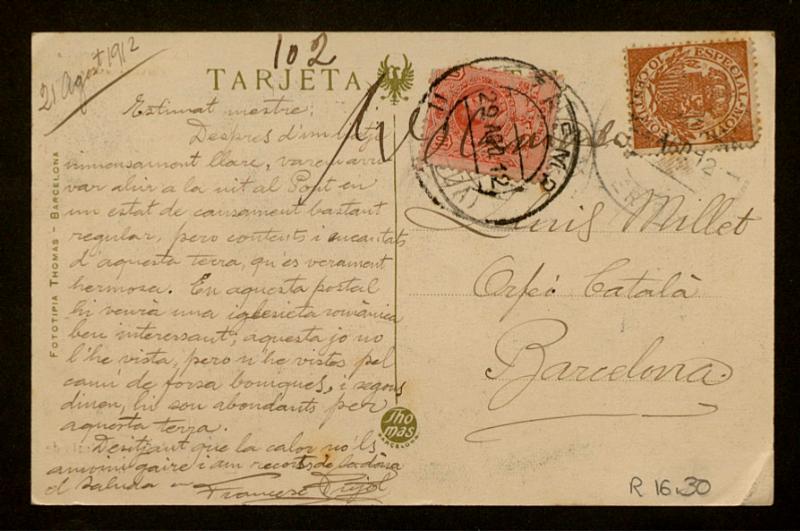 102
21 Agost 1912
TARJETA
Estimat mestre:
Despres d'un viatje
inmensament llarc, varem arri
var ahir a la nit al Pont en
un estat de cansament bastant
regular, pero contents i encantats
d'aquesta terra, qu'es verament
hermosa. En aquesta postal
hi veurà una iglesieta romànica
ben interessant; aquesta jo no
l'he vista, pero n'he vistes pel
camí de forsa boniques, i segons
diuen, hi son abondants per
aquesta terra.
Desitjant que la calor no'ls
amoïni gaire i am recorts de la dòna
el saluda
Francesc Pujol
FOTOTIPIA THOMAS - BARCELONA
Thomas
BARCELONA
ESPECIAL MOVIL
12
Lluis Millet
Orfeó Català
Barcelona.
R 16.30